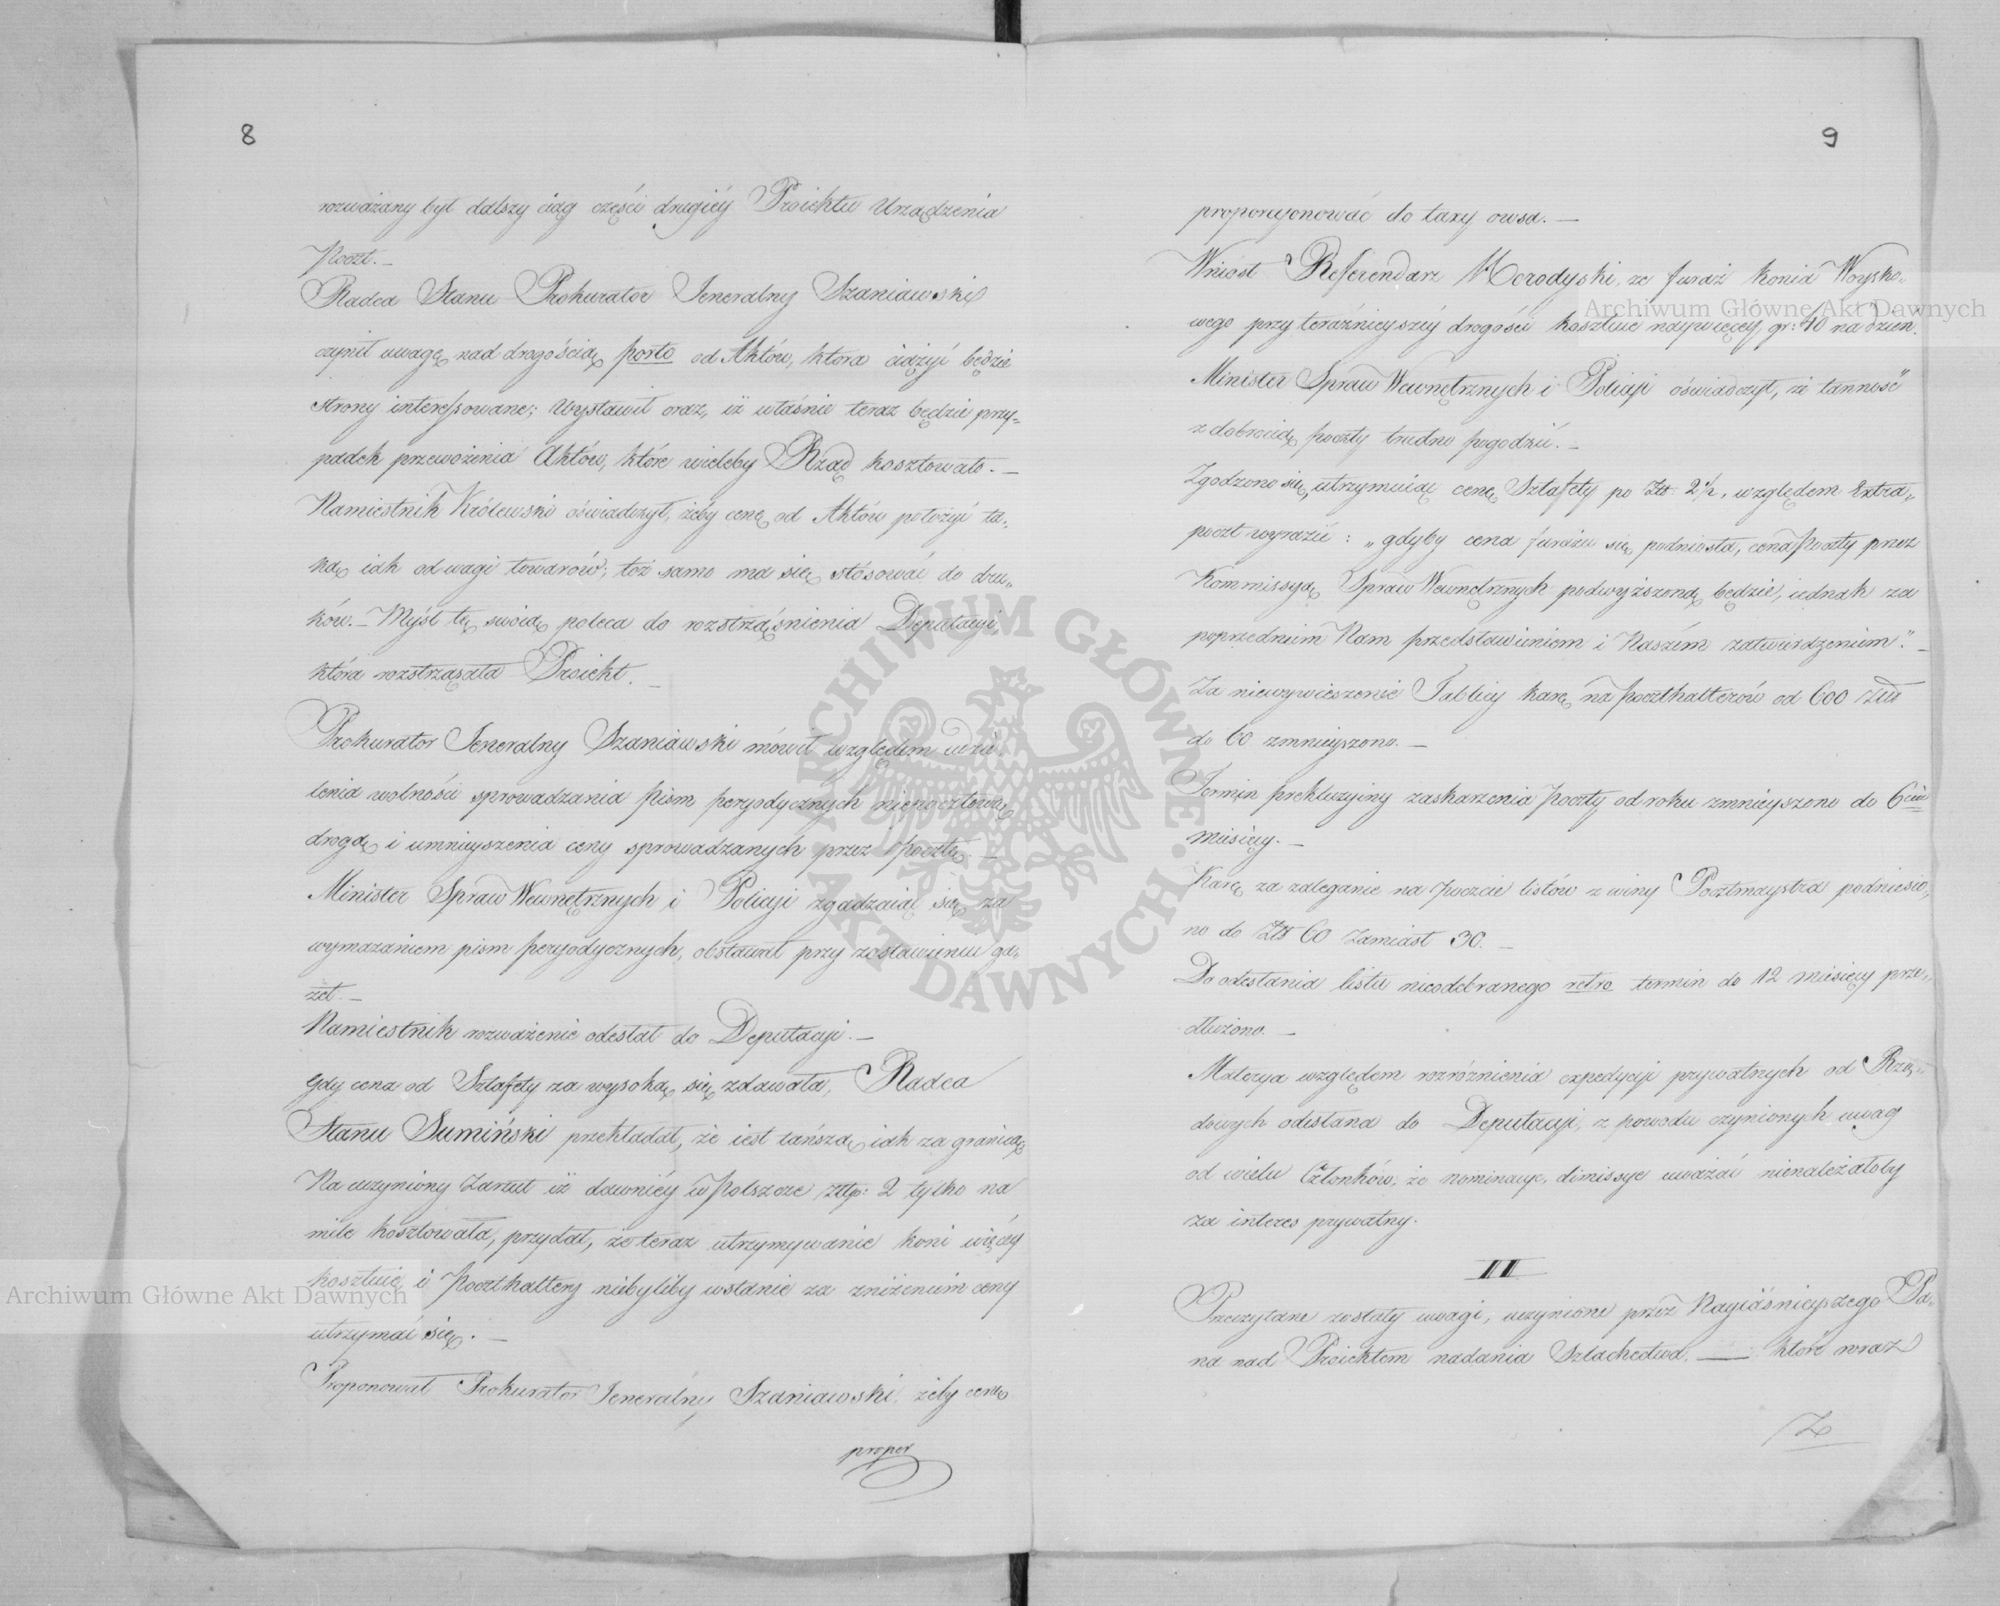 8
rozważany był dalszy ciąg części drugiéy Proiektu Urządzenia
Poczt. —
Radca Stanu Prokurator Jeneralny Szaniawski
czynił uwagę nad drogością porto od Aktów, która ciężyć będzie
strony interessowane; Wystawił oraz, iż właśnie teraz będzie przy-
padek przewożenia Aktów, które wieleby Rząd kosztowało. —
Namiestnik Królewski oświadczył, żeby cenę od Aktów położyć ta-
ką iak od wagi towarów; toż samo ma się stósować do dru-
ków. — Myśl tę swoię poleca do rozstrząśnienia Deputacyi,
która rozstrząsała Proiekt. —
Prokurator Jeneralny Szaniawski mówił względem udzie-
lenia wolności sprowadzania pism peryodycznych niepocztową
drogą i umnieyszenia ceny sprowadzanych przez pocztę. —
Minister Spraw Wewnętrznych i Policyi zgadzaiąc się za
wymazaniem pism peryodycznych, obstawał przy zostawieniu ga-
zet. —
Namiestnik rozważenie odesłał do Deputacyi. —
Gdy cena od Sztafety za wysoką się zdawała, Radca
Stanu Sumiński przekładał, że iest tańszą iak za granicą
Na uczyniony Zarzut iż dawniéy w Polszcze złp: 2 tylko na
milę kosztowała, przydał, że teraz utrzymywanie koni więcéy
kosztuie i Poczthalterzy niebyliby wstanie za zniżeniem ceny
utrzymać się. —
Proponował Prokurator Jeneralny Szaniawski, żeby cenę
propor
9
proporcyonować do taxy owsa. —
Wniósł Referendarz Horodyski, że furaż konia Woysko-
wego przy teraźnieyszéy drogości kosztuie naywięcéy gr: 40 na dzień.
Minister Spraw Wewnętrznych i Policyi oświadczył, że tanność
z dobrocią poczty trudno pogodzić. —
Zgodzono się, utrzymuiąc cenę Sztafety po Zł: 2½, względem Extra-
poczt wyrazić: „gdyby cena furażu się podniosła, cena Poczty przez
Kommissyą Spraw Wewnętrznych podwyższoną będzie, iednak za
poprzedniem Nam przedstawieniem i Naszém zatwierdzeniem." —
Za niewywieszenie Tablicy karę na Poczthalterów od 600 Złł
do 60 zmnieyszono. —
Termin prekluzyiny zaskarżenia Poczty od roku zmnieyszono do 6ciu
miesięcy. —
Karę za zaleganie na Poczcie listów z winy Pocztmaystra podniesio-
no do Złł 60 Zamiast 30. —
Do odesłania listu nieodebranego retro termin do 12 miesięcy prze-
dłużono. —
Materya względem rozróżnienia expedycyi prywatnych od Rzą-
dowych odesłana do Deputacyi, z powodu czynionych uwag
od wielu Członków, że nominacye, dimissye uważać nienależałoby
za interes prywatny.
II
Przeczytane zostały uwagi, uczynione przez Nayiaśnieyszego Pa-
na nad Proiektem nadania Szlachectwa, — które wraz
Z
Archiwum Główne Akt Dawnych
Archiwum Główne Akt Dawnych
ARCHIWUM GŁÓWNE AKT DAWNYCH